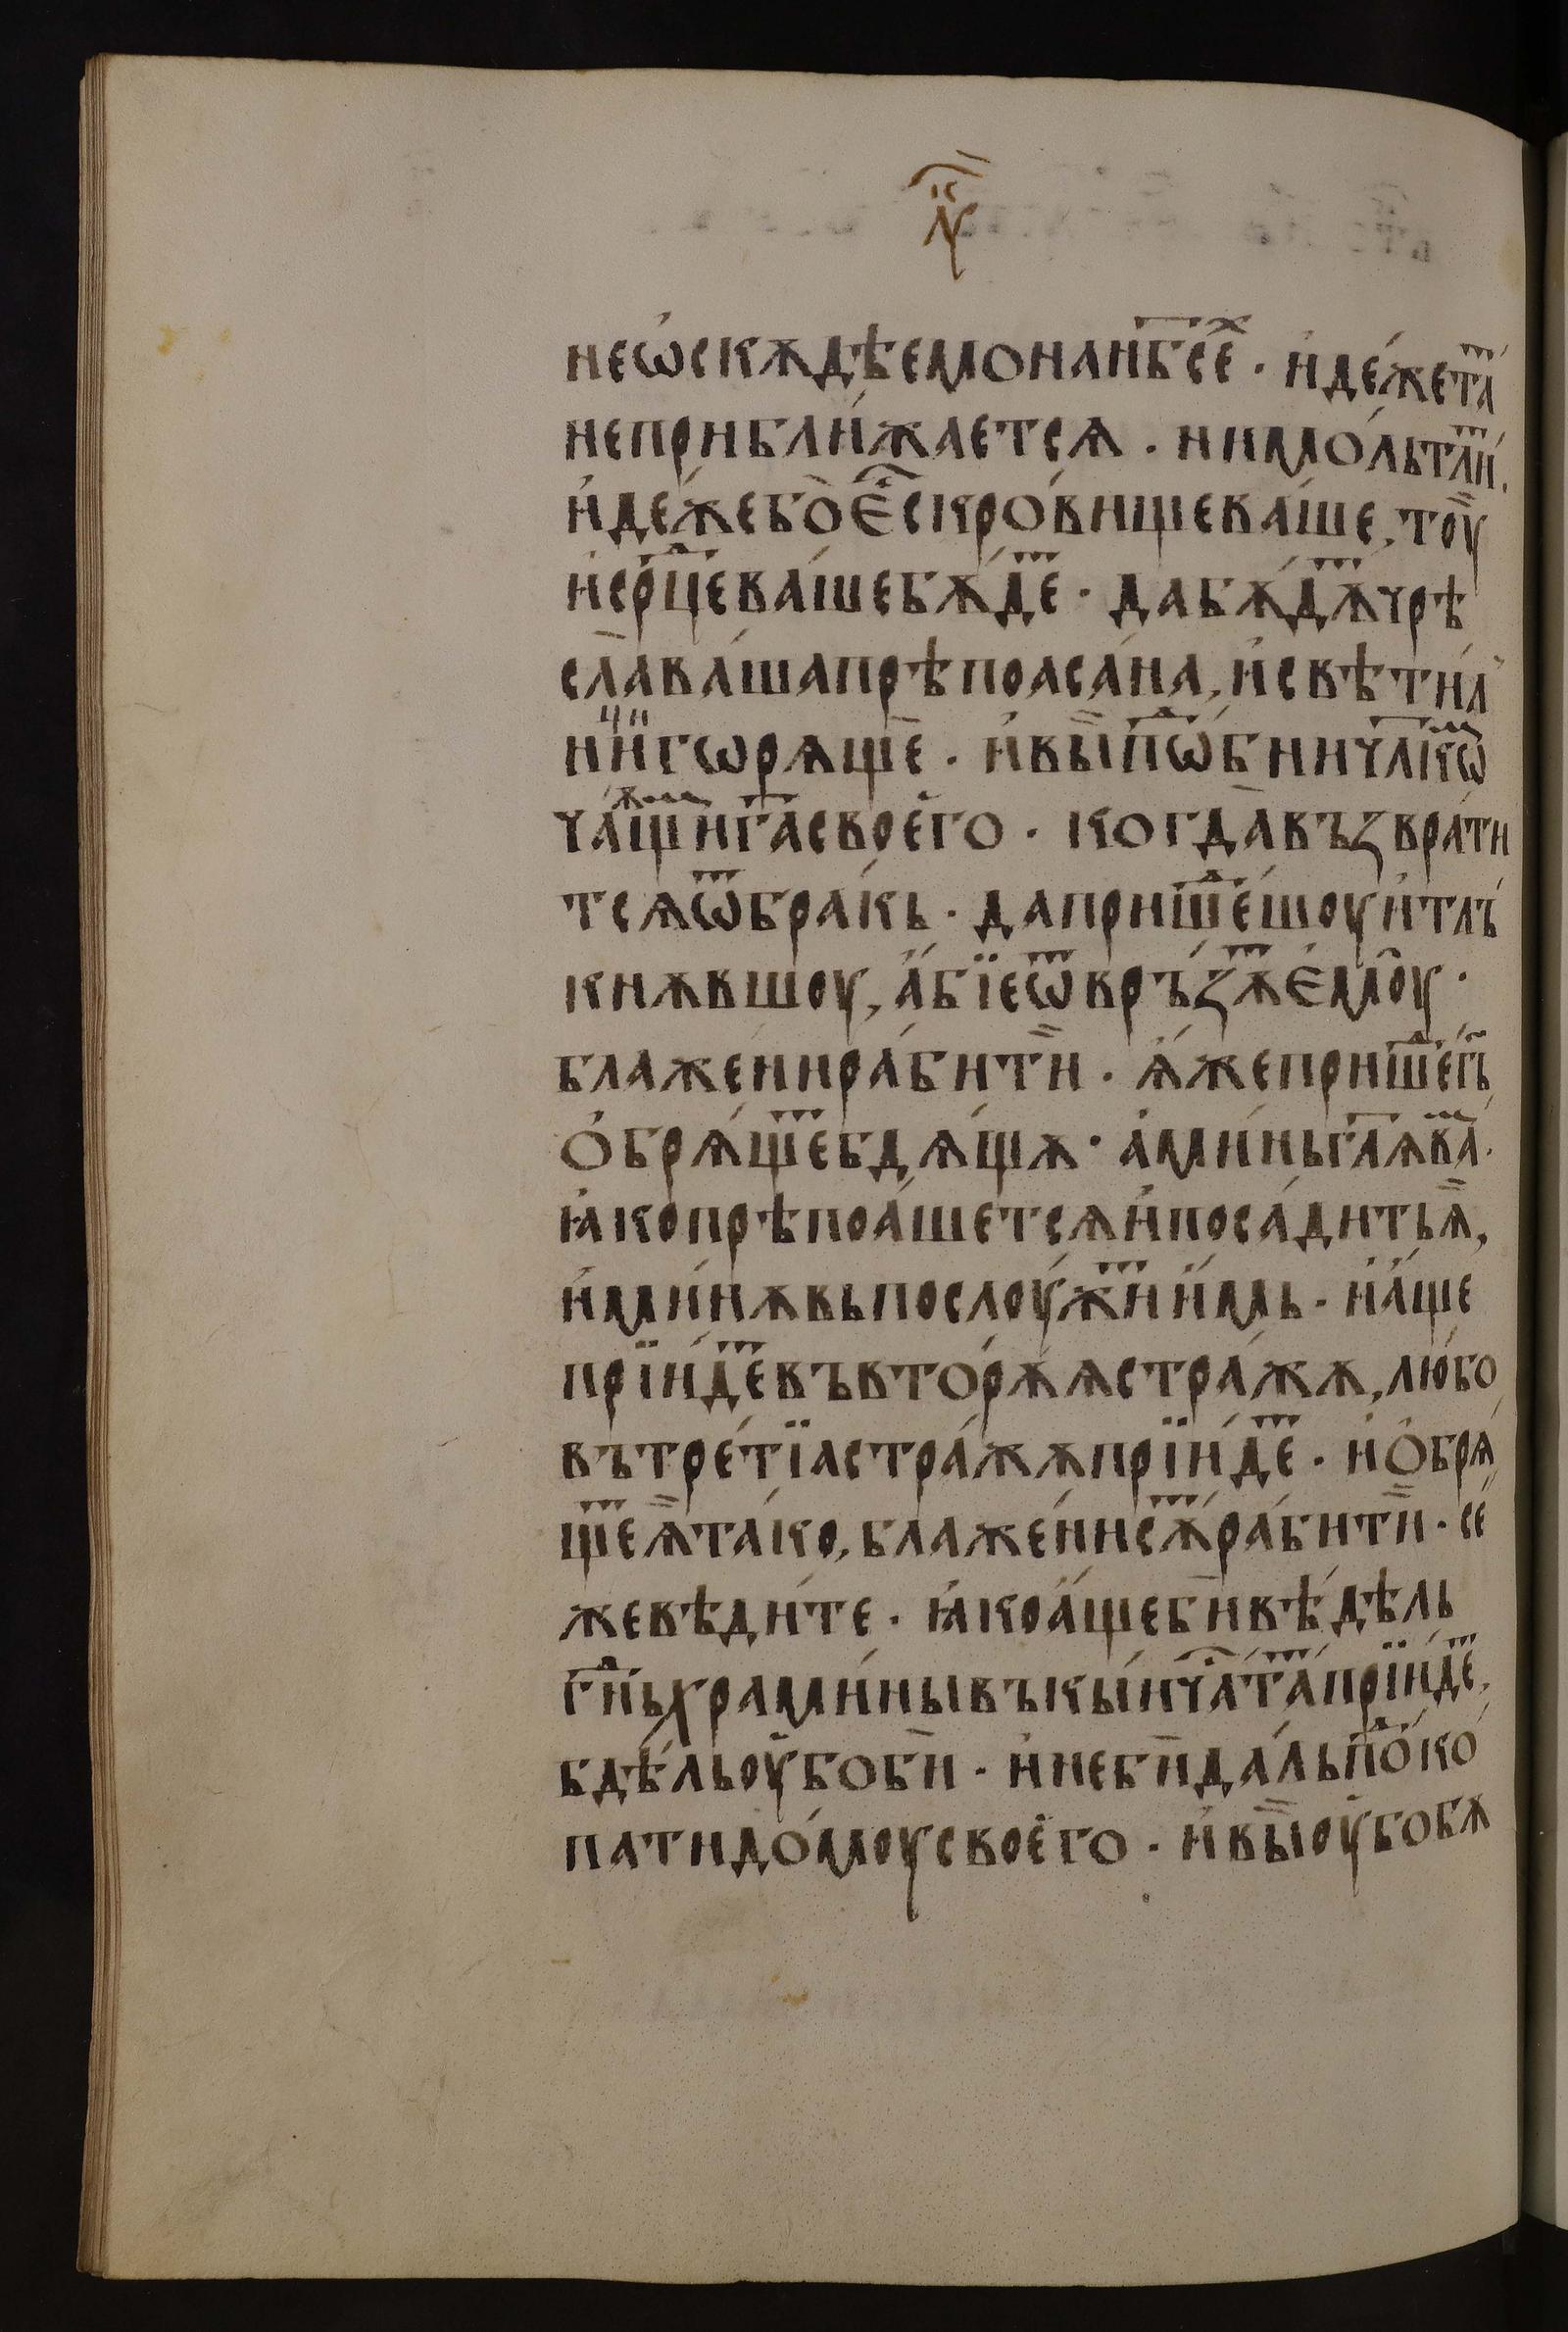 не ѡ҆скѫдѣемо на нб҃сех҃ · и҆де́же та́т
не прибли́жаетсѧ · ни мо́ль тли́т ·
и҆де́же бо̀ е҆с҃ скро́вище ва́ше, тоу̀
и҆ ср҃дце ва́ше бѫ́дет · да бѫ́дѫт чрѣ
сла̀ ва́ша прѣпоаса́на, и҆ свѣти́л
ници горѧще · и҆ вы̀ пѡдо́бни чл҃кѡм
ча́ѫщим г҃а своего̀ · когда̀ възврати
тсѧ ѿ бра́кь · да прише́дшоу и҆ тлъ
кнѫвшоу, а҆́бїе ѿвръ́зѫт е҆моу̀ ·
блаже́ни раби ти̑ · ѧ҆́же прише́д г҃ь
о҆брѧ́щет бдѧ́щѫ · а҆ми́нь гл҃ѧ ва́м ·
ꙗ҆́ко прѣпоа́шетсѧ и҆ поса́дить ѧ̀,
и҆ ми́нѫвь послоу́жит и҆́мь · и҆ а҆́ще
прїи́дет въ вто́рѫѧ стра́жѫ, лю́бо
въ тре́тїа стра́жѫ прїи́дет · и҆ о҆брѧ́
щет ѧ̀ та́ко, блаже́ни сѫ́т раби ти̑ · се́
же вѣди́те · ꙗ҆́ко а҆́ще бѝ вѣ́дѣль
г҃нь хра́мины въ кы́и ча́с та́т прїи́дет,
бдѣ́ль оу҆́бо бѝ · и҆ не бѝ да́ль по́дко
пати до́моу своего̀ · и҆ вы̀ оу҆́бо бѫ